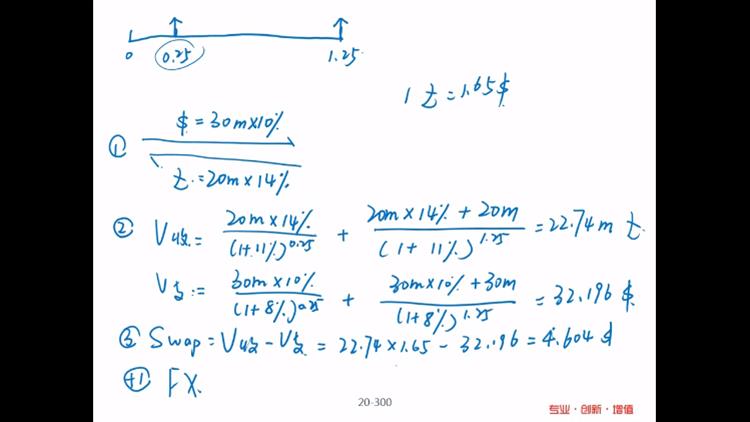 0 0.25 1.25
1 £ = 1.65 $
① $ = 30m×10%
£ = 20m×14%
② V收 = 20m×14% / (1+11%)^0.25 + 20m×14% + 20m / (1+11%)^1.25 = 22.74 m £.
V支 = 30m×10% / (1+8%)^0.25 + 30m×10% + 30m / (1+8%)^1.25 = 32.196 $.
③ Swap = V收 - V支 = 22.74×1.65 - 32.196 = 4.604 $
④ FX.
20-300
专业·创新·增值